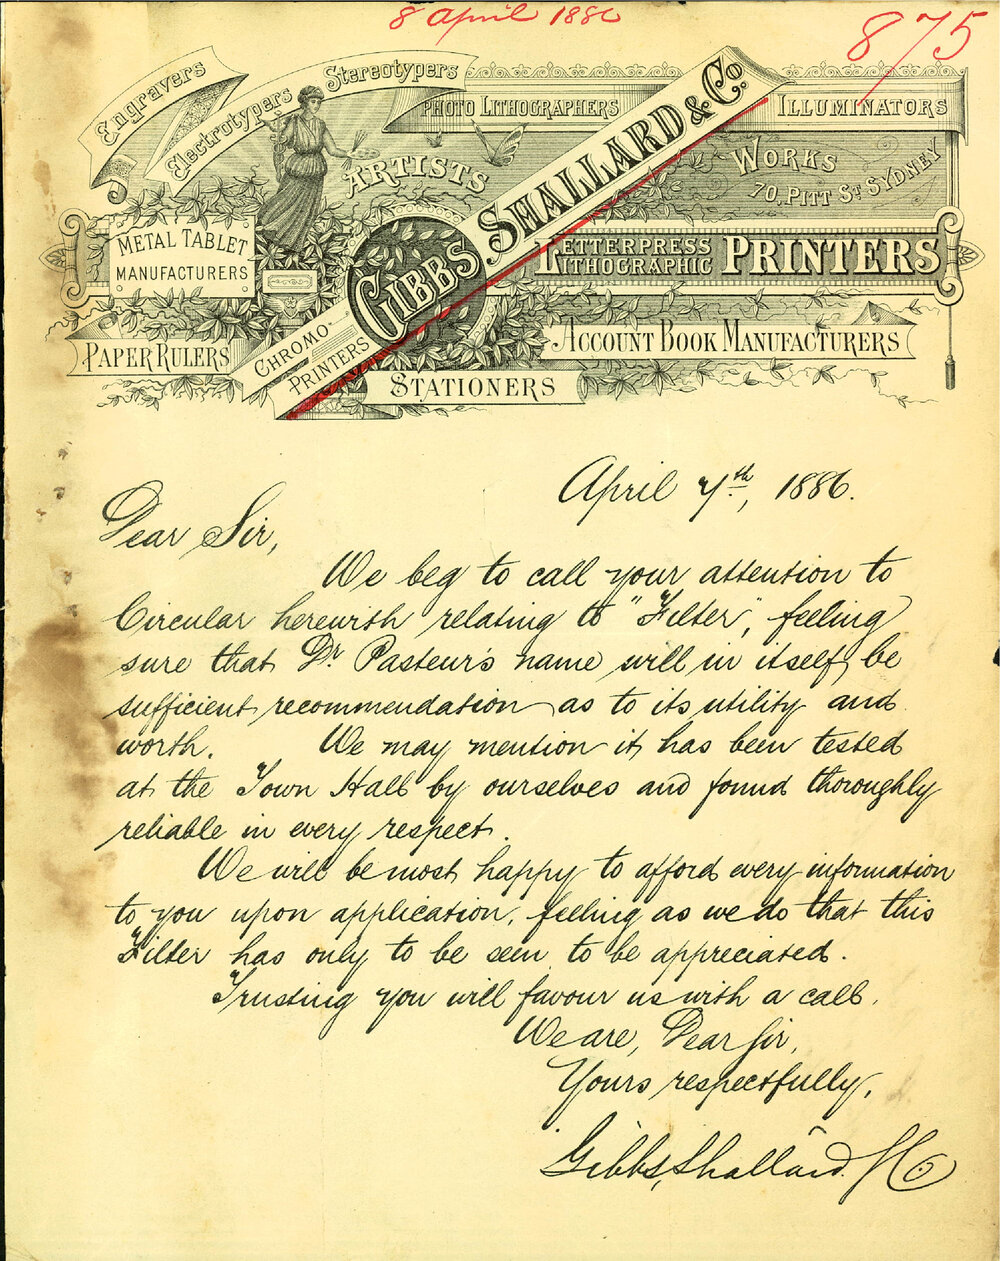 8 April 1886
875
Engravers
Electrotypers
Stereotypers
Photo Lithographers
Illuminators
Artists
Works
70, Pitt St Sydney
Gibbs Shallard & Co
Metal Tablet
Manufacturers
Letterpress
Lithographic
Printers
Paper Rulers
Chromo-
Printers
Account Book Manufacturers
Stationers
April 7th, 1886.
Dear Sir,
We beg to call your attention to
Circular herewith relating to "Filter", feeling
sure that Dr Pasteur's name will in itself be
sufficient recommendation as to its utility and
worth. We may mention it has been tested
at the Town Hall by ourselves and found thoroughly
reliable in every respect.
We will be most happy to afford every information
to you upon application, feeling as we do that this
Filter has only to be seen to be appreciated.
Trusting you will favour us with a call.
We are, Dear Sir,
Yours respectfully,
Gibbs, Shallard & Co.